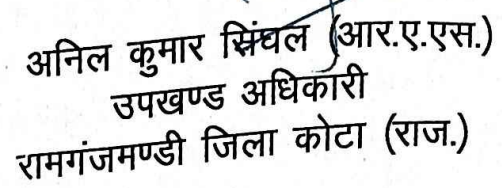 अनिल कुमार सिंघल (आर.ए.एस.)
उपखण्ड अधिकारी
रामगंजमण्डी जिला कोटा (राज.)